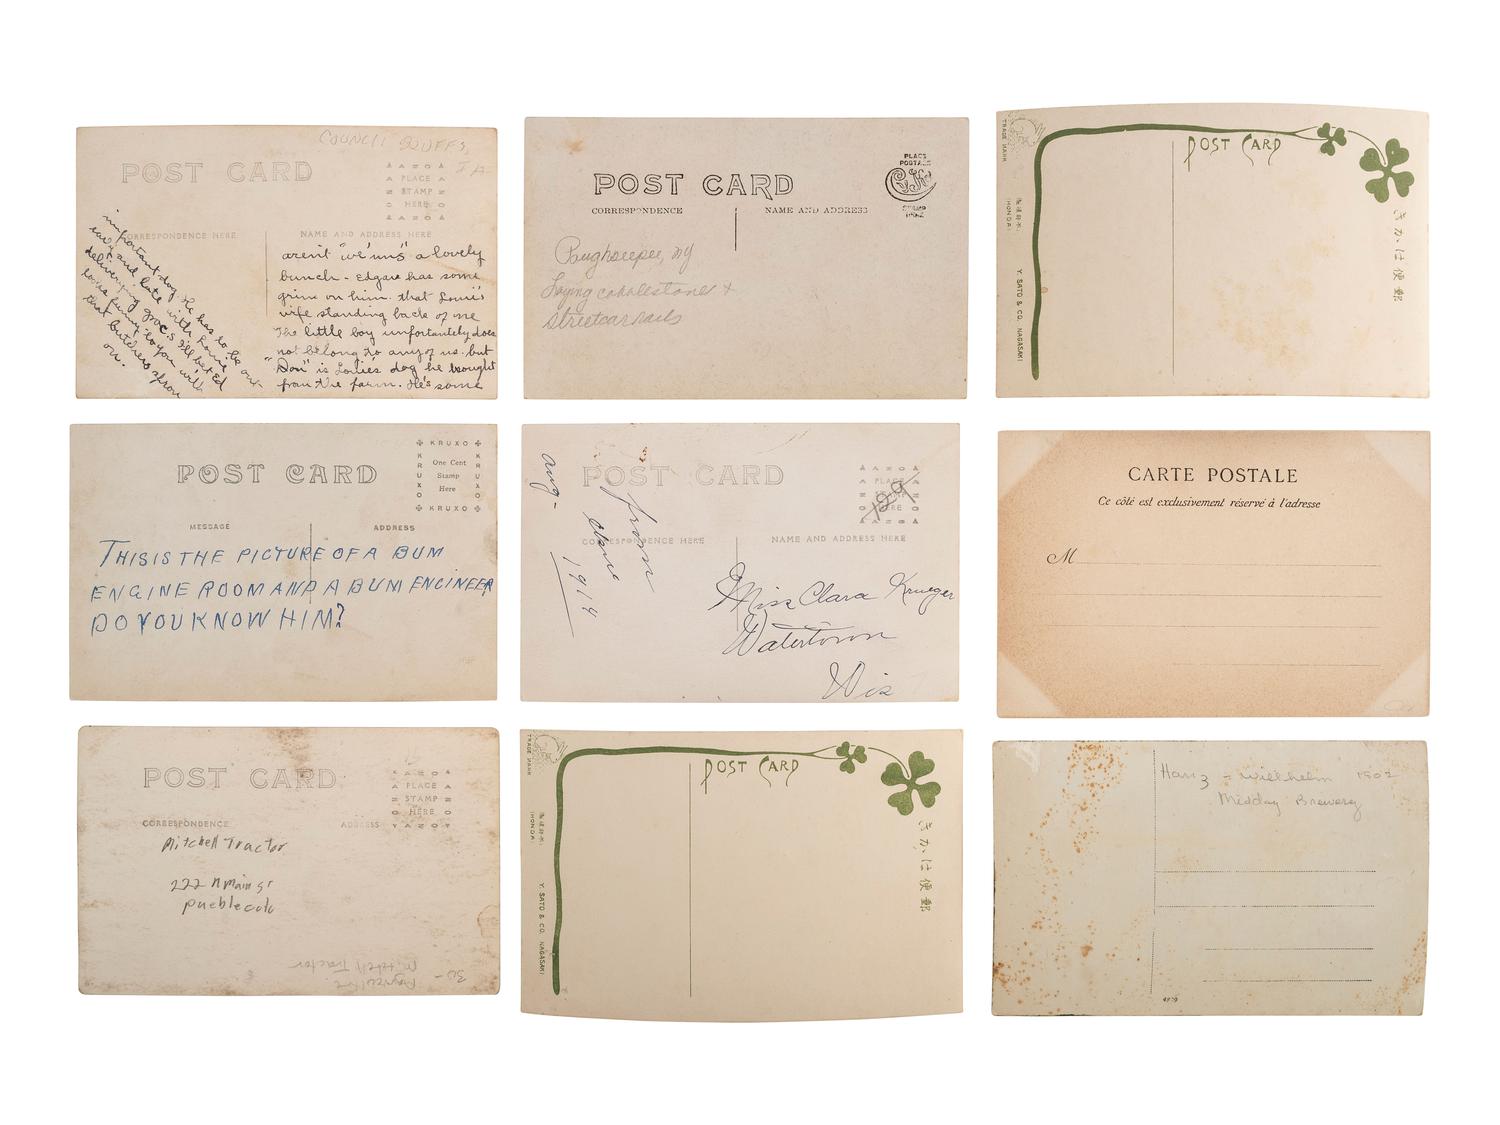 COUNCIL BLUFFS,
IA
POST CARD
AZOA
PLACE
STAMP
HERE
CORRESPONDENCE HERE
NAME AND ADDRESS HERE
arent "we'uns" a lovely
bunch - Edgar has some
grime on him. that Louie's
wife standing back of me
The little boy unfortunately does
not belong to any of us. but
"Don" is Louie's dog he brought
from the farm. He's some
important dog. He has to be out
early and late with Louie
delivering groc's I'll bet Ed
looks funny to you with
that butchers apron
on.
POST CARD
PLACE
POSTAGE
CYKO
STAMP
HERE
CORRESPONDENCE
NAME AND ADDRESS
Poughkeepsie, NY
Laying cobblestones +
streetcar rails
TRADE MARK
POST CARD
きかは便郵
(HONDA)
Y. SATO & CO. NAGASAKI
POST CARD
KRUXO
KRUXO
KRUXO
KRUXO
One Cent
Stamp
Here
MESSAGE
ADDRESS
THIS IS THE PICTURE OF A BUM
ENGINE ROOM AND A BUM ENGINEER
DO YOU KNOW HIM?
POST CARD
AZOA
PLACE
STAMP
HERE
129
CORRESPONDENCE HERE
NAME AND ADDRESS HERE
Aug-
from
Clara
1914
Miss Clara Krueger
Watertown
Wis
CARTE POSTALE
Ce côté est exclusivement réservé à l'adresse
M
POST CARD
AZOA
PLACE
STAMP
HERE
AZOV
CORRESPONDENCE
ADDRESS
Mitchell Tractor
222 N Main St
Pueblo Colo
30-
Mitchell Tractor
TRADE MARK
POST CARD
きかは便郵
(HONDA)
Y. SATO & CO. NAGASAKI
Hanz - Willhelm 1902
Midday Brewery